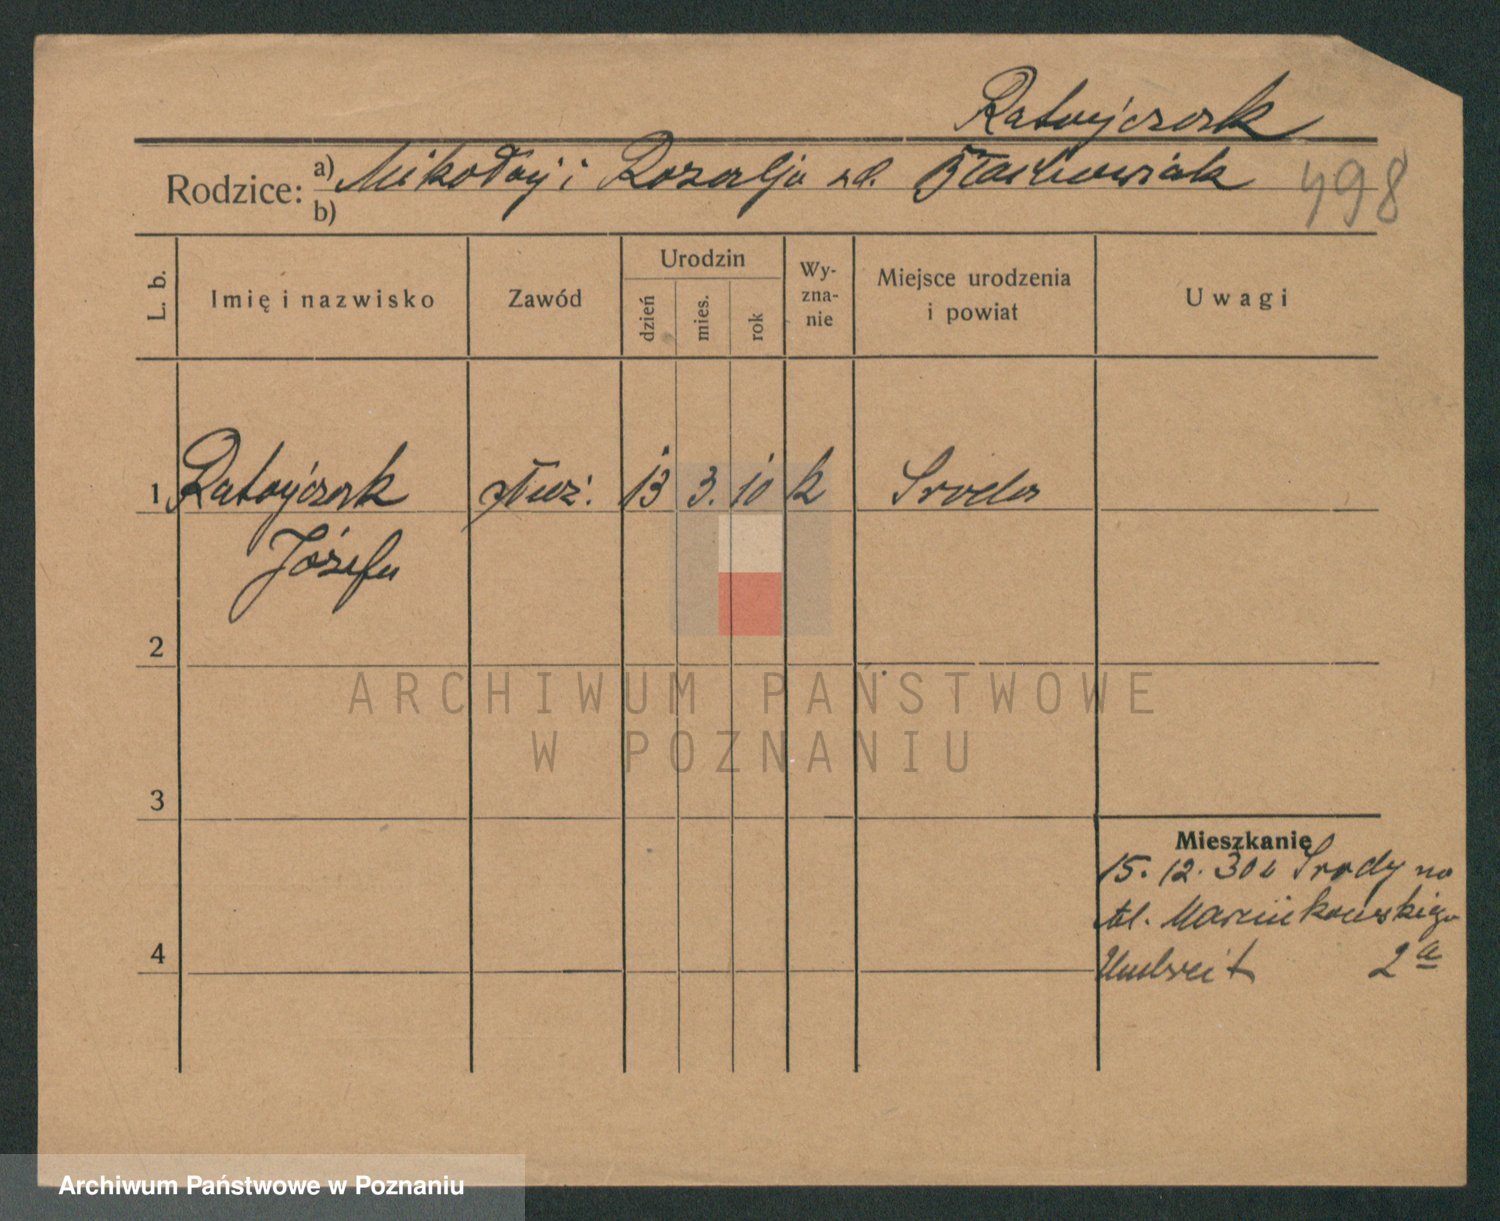 Ratajczak
Rodzice: a) Mikołaj i Rozalja zd. Błachowiak
b)
498
L. b. Imię i nazwisko Zawód Urodzin dzień mies. rok Wy-zna-nie Miejsce urodzenia i powiat Uwagi
1 Ratajczak służ. 13 3. 10 k Środa
Józefa
2
ARCHIWUM PAŃSTWOWE
W POZNANIU
3
Mieszkanie
15. 12. 30 z Środy na
ul. Marcinkowskiego
4
2a
Archiwum Państwowe w Poznaniu